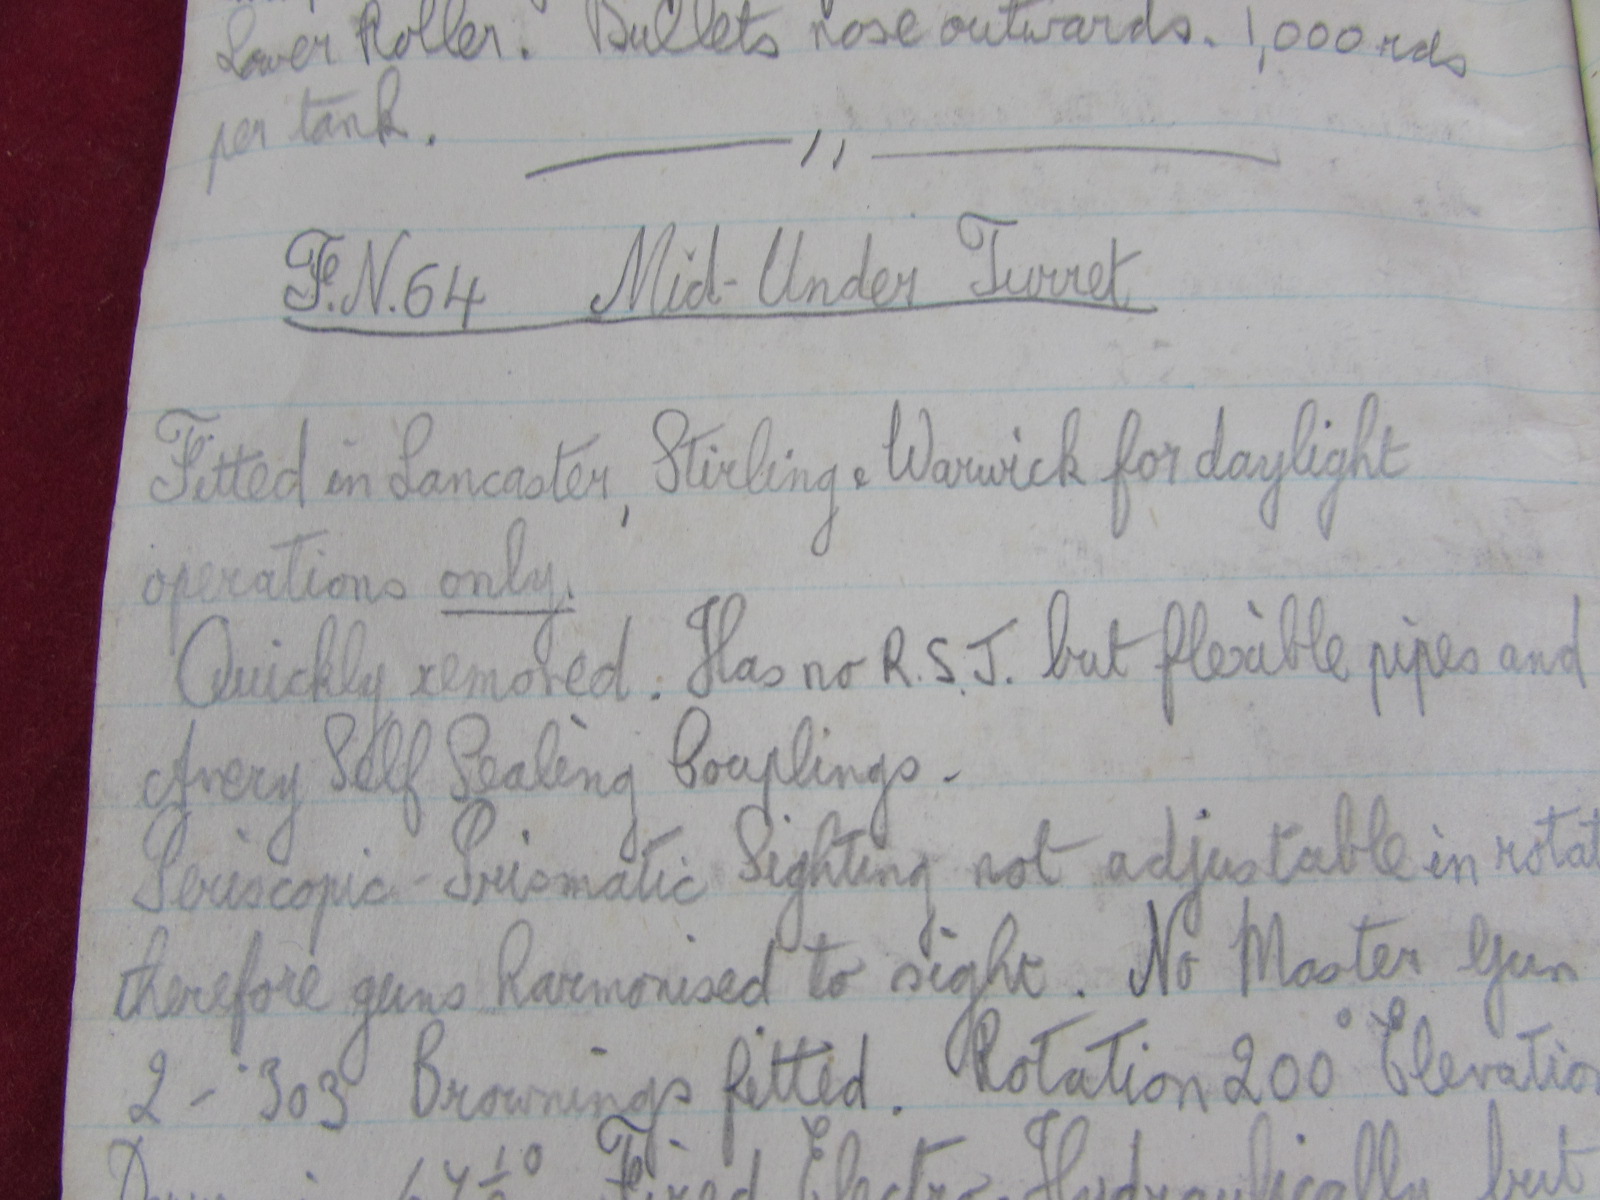 Lower Roller. Bullets nose outwards. 1,000 rds
per tank.
F.N.64 Mid-Under Turret
Fitted in Lancaster, Stirling & Warwick for daylight
operations only.
Quickly removed. Has no R.S.J. but flexible pipes and
Avery Self Sealing Couplings.
Periscopic-Prismatic Sighting not adjustable in rotat
therefore guns harmonised to sight. No Master Gun
2 - .303 Brownings fitted. Rotation 200° Elevation
67½° Fired Electro-Hydraulically but